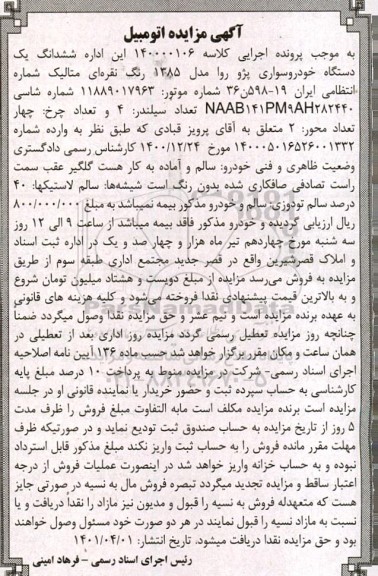 آگهی مزایده اتومبیل
به موجب پرونده اجرایی کلاسه ۱۴۰۰۰۰۱۰۶ این اداره ششدانگ یک
دستگاه خودروسواری پژو روا مدل ۱۳۸۵ رنگ نقره‌ای متالیک شماره
انتظامی ایران ۱۹-۵۹۸ن۳۶ شماره موتور: ۱۱۸۸۹۰۱۷۹۶۳ شماره شاسی
NAAB۱۴۱PM۹AH۲۸۲۴۴۰ تعداد سیلندر: ۴ و تعداد چرخ: چهار
تعداد محور: ۲ متعلق به آقای پرویز قبادی که طبق نظر به وارده شماره
۱۴۰۰۰۵۰۱۶۵۲۶۰۰۱۳۳۲ مورخ ۱۴۰۰/۱۲/۲۴ کارشناس رسمی دادگستری
وضعیت ظاهری و فنی خودرو: سالم و آماده به کار هست گلگیر عقب سمت
راست تصادفی صافکاری شده بدون رنگ است شیشه‌ها: سالم لاستیکها: ۴۰
درصد سالم تودوزی: سالم و خودرو مذکور بیمه نمیباشد به مبلغ ۸۰۰/۰۰۰/۰۰۰
ریال ارزیابی گردیده و خودرو مذکور فاقد بیمه میباشد از ساعت ۹ الی ۱۲ روز
سه شنبه مورخ چهاردهم تیر ماه هزار و چهار صد و یک در اداره ثبت اسناد
و املاک قصرشیرین واقع در قصر جدید مجتمع اداری طبقه سوم از طریق
مزایده به فروش می‌رسد مزایده از مبلغ دویست و هشتاد میلیون تومان شروع
و به بالاترین قیمت پیشنهادی نقدا فروخته می‌شود و کلیه هزینه های قانونی
به عهده برنده مزایده است و نیم عشر و حق مزایده نقدا وصول میگردد ضمنا
چنانچه روز مزایده تعطیل رسمی گردد مزایده روز اداری بعد از تعطیلی در
همان ساعت و مکان مقرر برگزار خواهد شد حسب ماده ۱۳۶ آیین نامه اصلاحیه
اجرای اسناد رسمی- شرکت در مزایده منوط به پرداخت ۱۰ درصد مبلغ پایه
کارشناسی به حساب سپرده ثبت و حضور خریدار یا نماینده قانونی او در جلسه
مزایده است برنده مزایده مکلف است مابه التفاوت مبلغ فروش را ظرف مدت
۵ روز از تاریخ مزایده به حساب صندوق ثبت تودیع نماید و در صورتیکه ظرف
مهلت مقرر مانده فروش را به حساب ثبت واریز نکند مبلغ مذکور قابل استرداد
نبوده و به حساب خزانه واریز خواهد شد در اینصورت عملیات فروش از درجه
اعتبار ساقط و مزایده تجدید میگردد تبصره فروش مال به نسیه در صورتی جایز
هست که متعهدله فروش به نسیه را قبول و مدیون نیز مازاد را نقدا دریافت و یا
نسبت به مازاد نسیه را قبول نمایند در هر دو صورت خود مسئول وصول خواهند
بود و حق مزایده نقدا دریافت میشود. تاریخ انتشار: ۱۴۰۱/۰۴/۰۱
رئیس اجرای اسناد رسمی – فرهاد امینی